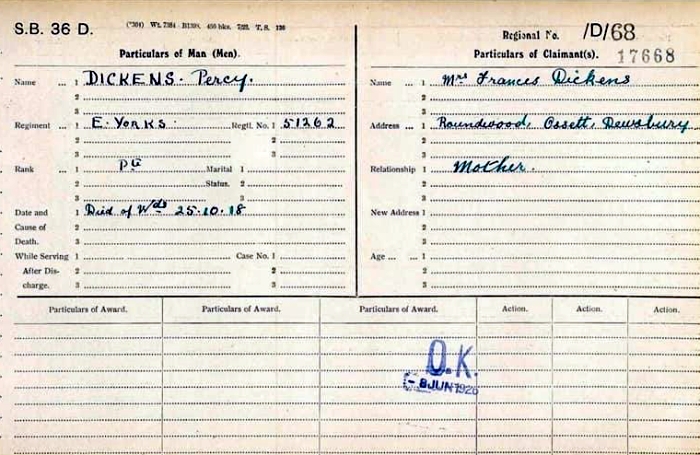 S.B. 36 D.
Regional No. /D/68
Particulars of Man (Men).
Particulars of Claimant(s).
17668
Name ... 1 DICKENS. Percy.
2
3
Regiment ... 1 E. YORKS. Regtl. No. 1 51262
2 2
3 3
Rank 1 Pte Marital 1
2 Status. 2
3 3
Date and 1 Died of Wds 25.10.18
Cause of 2
Death. 3
While Serving 1 Case No. 1
After Dis- 2 2
charge. 3 3
Name ... 1 Mrs Frances Dickens
2
3
Address ... 1 Roundwood, Ossett, Dewsbury
2
3
Relationship 1 Mother.
2
3
New Address 1
2
3
Age ... ... 1
2
3
Particulars of Award. Particulars of Award. Particulars of Award. Action. Action. Action.
O.K.
-8 JUN 192